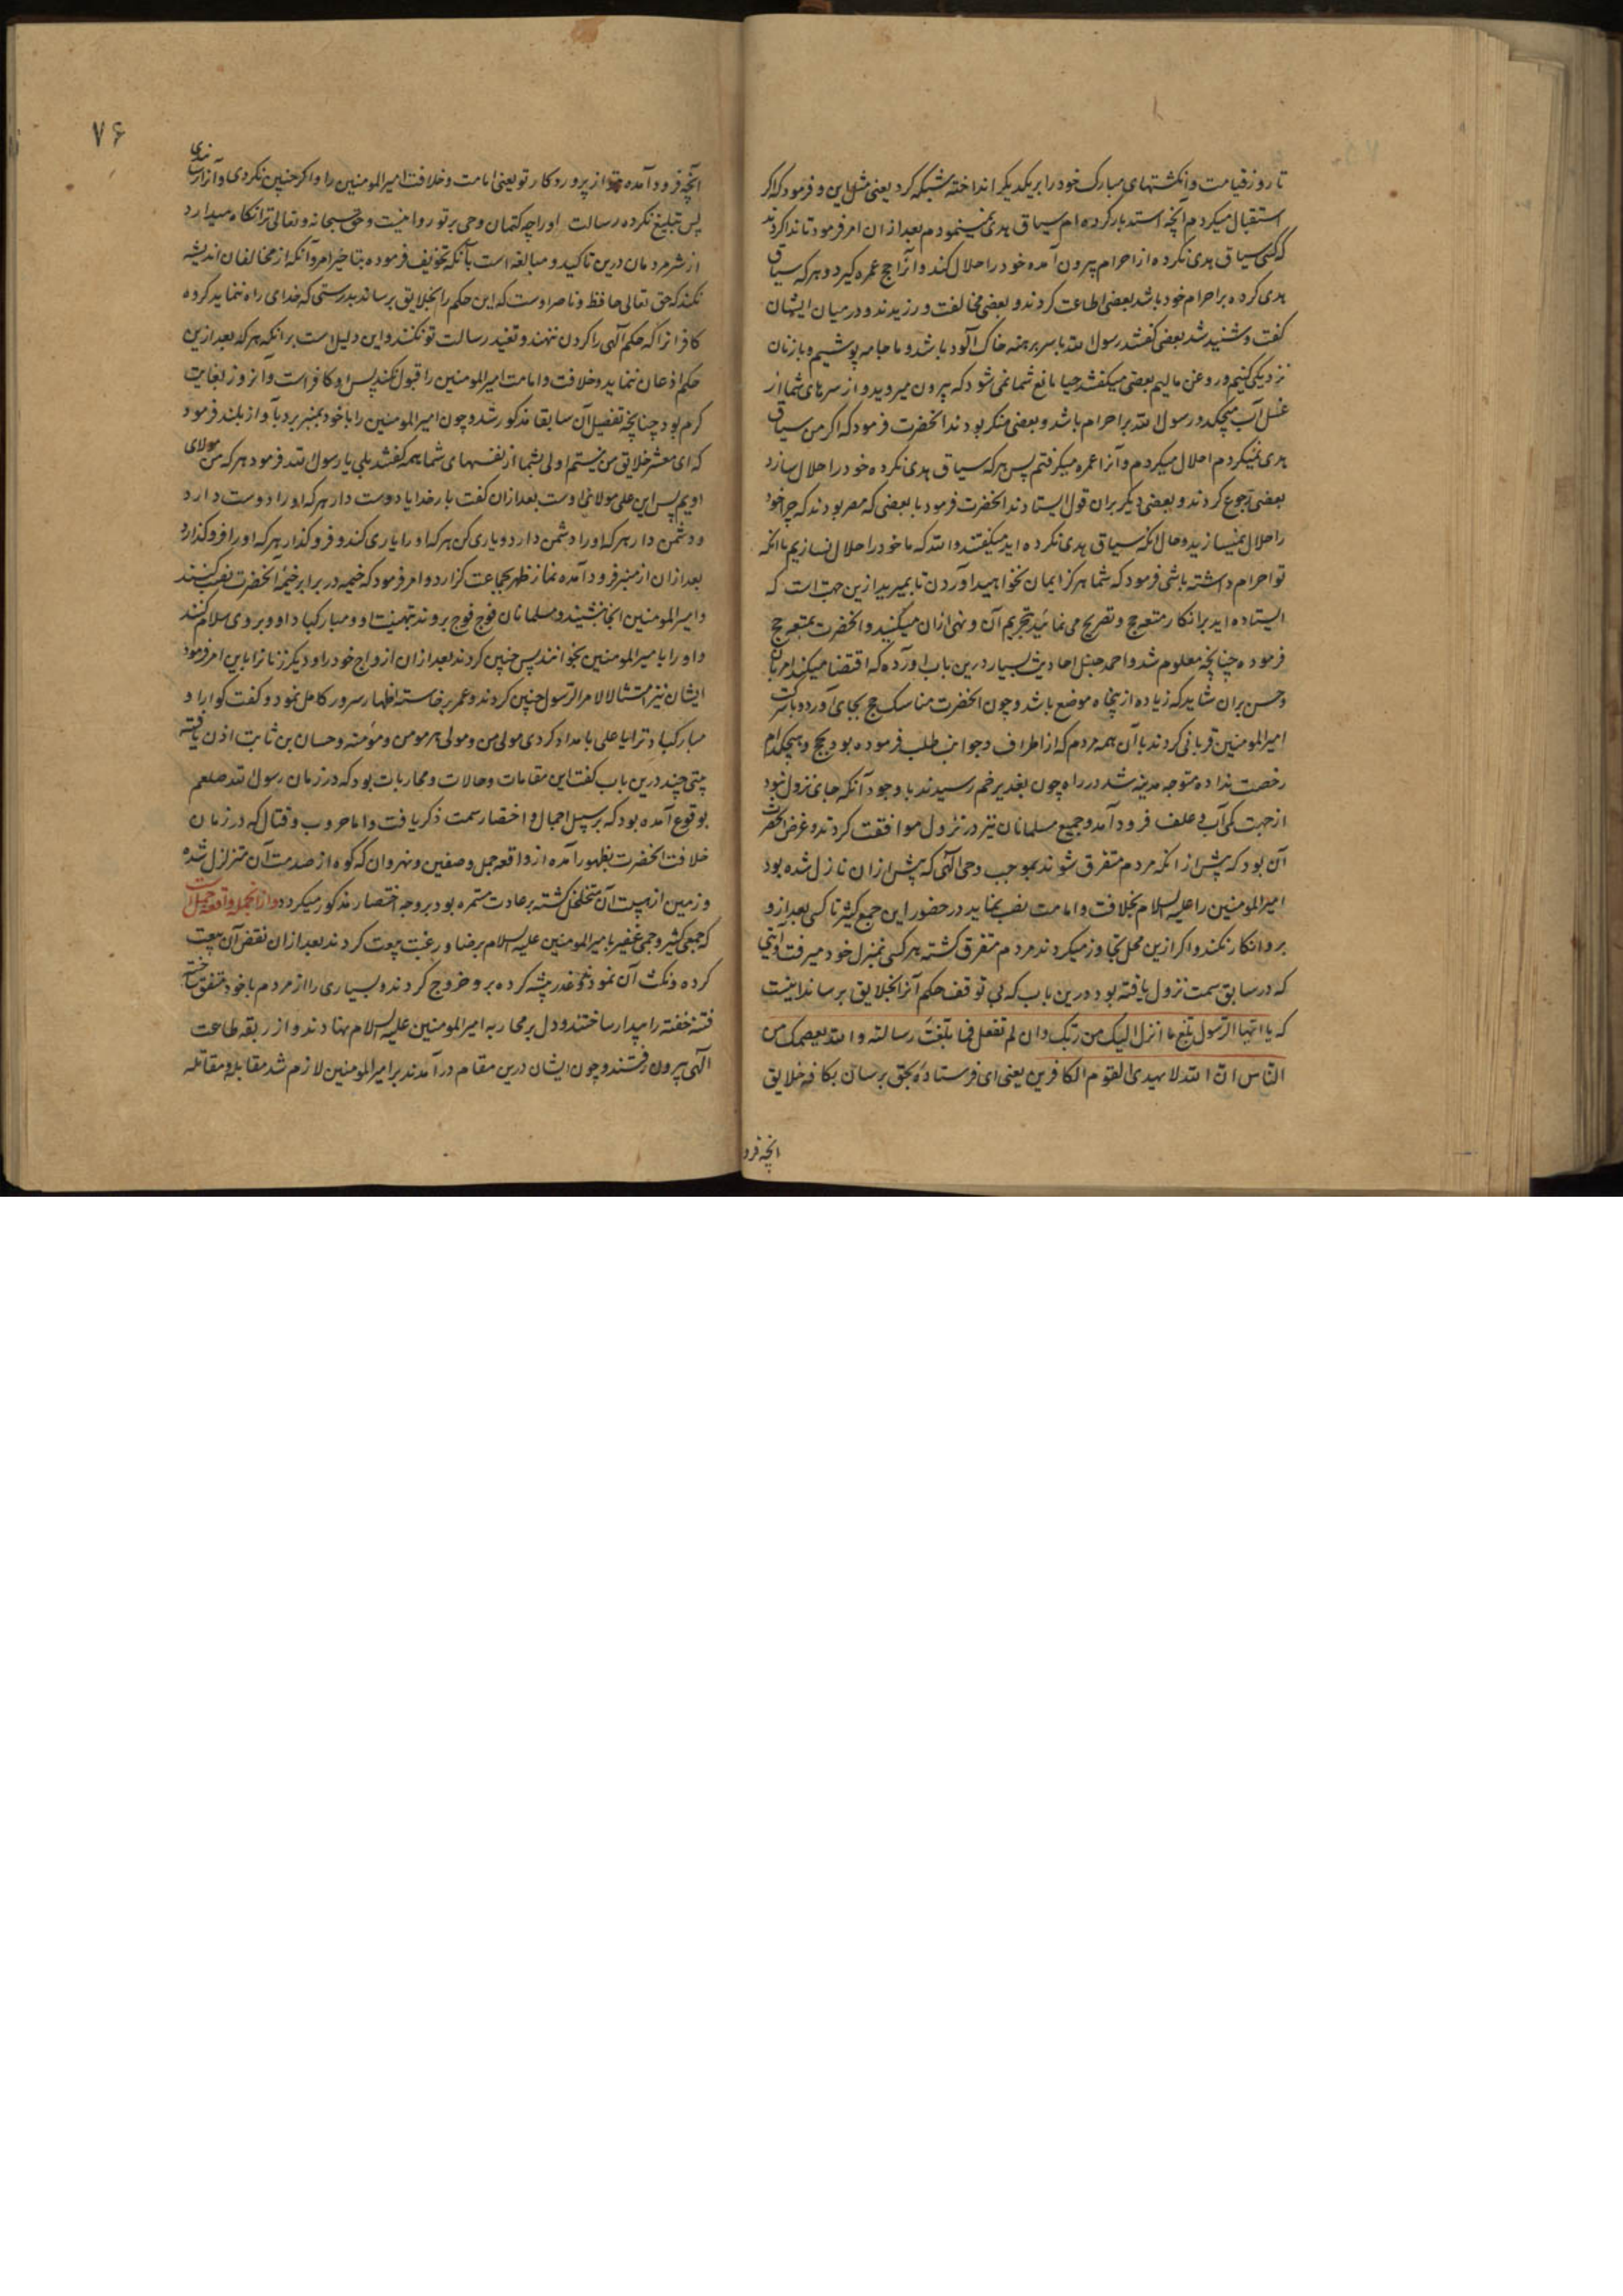 تا روز قیامت و انگشتهای مبارک خود را بریکدیکر انداخته مشبکه کرد یعنی مثل این و فرمود که اکر
استقبال میکردم آنچه استدبار کرده ام سیاق هدی نمینمودم بعد ازان امر فرمود تا ندا کردند
که کسی سیاق هدی نکرده از احرام بیرون آمده خود را حلال کند و آنرا حج عمره گیرد و هر که سیاق
هدی کرده بر احرام خود باشد بعضی اطاعت کردند و بعضی مخالفت ورزیدند و درمیان ایشان
گفت و شنید شد بعضی گفتند رسول الله با سر برهنه خاک آلود باشد و ما جامه پوشیم و با زنان
نزدیکی کنیم و روغن مالیم بعضی میکفتند حیا مانع شما نمی شود که بیرون میروید و از سرهای شما از
غسل آب میچکد و رسول الله بر احرام باشد و بعضی منکر بودند انحضرت فرمود که اکر من سیاق
هدی نمیکردم احلال میکردم و آنرا عمره میکرفتم پس هر که سیاق هدی نکرده خود را حلال سازد
بعضی رجوع کردند و بعضی دیکر بران قول ایستادند انحضرت فرمود با بعضی که مصر بودند که چرا خود
را حلال نمیسازید و حال انکه سیاق هدی نکرده اید میکفتند والله که ما خود را حلال نسازیم با انکه
تو احرام داشته باشی فرمود که شما هرکز ایمان نخواهید آوردن تا بمیرید ازین جهت است که
ایستاده اید بر انکار متعه حج و تصریح می نمائید بتحریم آن و نهی ازان میکنید و انحضرت بمتعه حج
فرموده چنانچه معلوم شد و احمد حنبل احادیث بسیار درین باب آورده که اقتضا میکند امر بان
و حسن بران شاید که زیاده از پنجاه موضع باشد و چون انحضرت مناسک حج بجای آورد و با شرکت
امیرالمومنین قربانی کردند با آن همه مردم که از اطراف و جوانب طلب فرموده بود بحج و هیچکدام
رخصت نداده متوجه مدینه شد در راه چون بغدیر خم رسیدند با وجود آنکه جای نزول نبود
از جهت کمی آب و علف فرود آمد و جمیع مسلمانان نیز در نزول موافقت کردند و غرض انحضرت
آن بود که پیش از انکه مردم متفرق شوند بموجب وحی الهی که پیش ازان نازل شده بود
امیرالمومنین را علیه السلام بخلافت و امامت نصب نماید در حضور این جمع کثیر تا کسی بعد ازو
برو انکار نکند و اکر ازین محل تجاوز میکردند مردم متفرق کشته هر کسی بمنزل خود میرفت و آیتی
که در سابق سمت نزول یافته بود درین باب که بی توقف حکم آنرا بخلایق برساند اینست
که یا ایها الرسول بلغ ما انزل الیک من ربک وان لم تفعل فما بلغت رسالته والله یعصمک من
الناس ان الله لا یهدی القوم الکافرین یعنی ای فرستاده بحق برسان بکافه خلایق
انچه فرو
۷۶
انچه فرود آمده بتو از پروردکار تو یعنی امامت و خلافت امیرالمومنین را و اکر چنین نکردی و آنرا نرسانیدی
پس تبلیغ نکرده رسالت او را چه کتمان وحی بر تو روا نیست و حق سبحانه و تعالی ترا نکاه میدارد
از شر مردمان درین تاکید و مبالغه است بآنکه تخویف فرموده بتاخیر امر و آنکه از مخالفان اندیشه
نکند که حق تعالی حافظ و ناصر اوست که این حکم را بخلایق برساند بدرستی که خدای راه ننماید کروه
کافرانرا که حکم آلهی را کردن ننهند و تفنید رسالت تو نکنند و این دلیل است بر انکه هر که بعد ازین
حکم اذعان ننماید و خلافت و امامت امیرالمومنین را قبول نکند پس او کافر است و آنروز بغایت
کرم بود چنانچه تفصیل آن سابقا مذکور شد و چون امیرالمومنین را با خود بمنبر برد بآواز بلند فرمود
که ای معشر خلایق من نیستم اولی بشما از نفسهای شما همه کفتند بلی یا رسول الله فرمود هر که من مولای
اویم پس این علی مولای اوست بعد ازان کفت بار خدایا دوست دار هر که او را دوست دارد
و دشمن دار هر که او را دشمن دارد و یاری کن هر که او را یاری کند و فروکذار هر که او را فروکذارد
بعد ازان از منبر فرود آمده نماز ظهر بجماعت کزارد و امر فرمود که خیمه در برابر خیمه انحضرت نصب کنند
و امیرالمومنین انجا نشیند و مسلمانان فوج فوج بروند بتهنیت او و مبارکباد او و بروی سلام کنند
و او را با میرالمومنین بخوانند پس چنین کردند بعد ازان ازواج خود را و دیکر زنانرا باین امر فرمود
ایشان نیز امتثالا لامر الرسول چنین کردند و عمر برخاسته اظهار سرور کامل نمود و کفت کوارا و
مبارکباد ترا یا علی بامداد کردی مولی من و مولی هر مومن و مومنه و حسان بن ثابت اذن یافته
بیتی چند درین باب کفت این مقامات و حالات و محاربات بود که در زمان رسول الله صلعم
بوقوع آمده بود که بر سبیل اجمال و اختصار سمت ذکر یافت و اما حروب و قتال که در زمان
خلافت انحضرت بظهور آمده از واقعه جمل و صفین و نهروان که کوه از صدمت آن متزلزل شده
و زمین از هیبت آن متخلخل کشته بر عادت مستمره بود بر وجه اختصار مذکور میکردد و ازانجمله واقعه جمل است
که جمعی کثیر و جمی غفیر با میرالمومنین علیه السلام برضا و رغبت بیعت کردند بعد ازان نقض آن بیعت
کرده و نکث آن نمودند و غدر پیشه کرده برو خروج کردند و بسیاری را از مردم با خود متفق ساخته
فتنه خفته را بیدار ساختند و دل بر محاربه امیرالمومنین علیه السلام نهادند و از ربقه طاعت
الهی بیرون رفتند و چون ایشان درین مقام درآمدند بر امیرالمومنین لازم شد مقابله و مقاتله